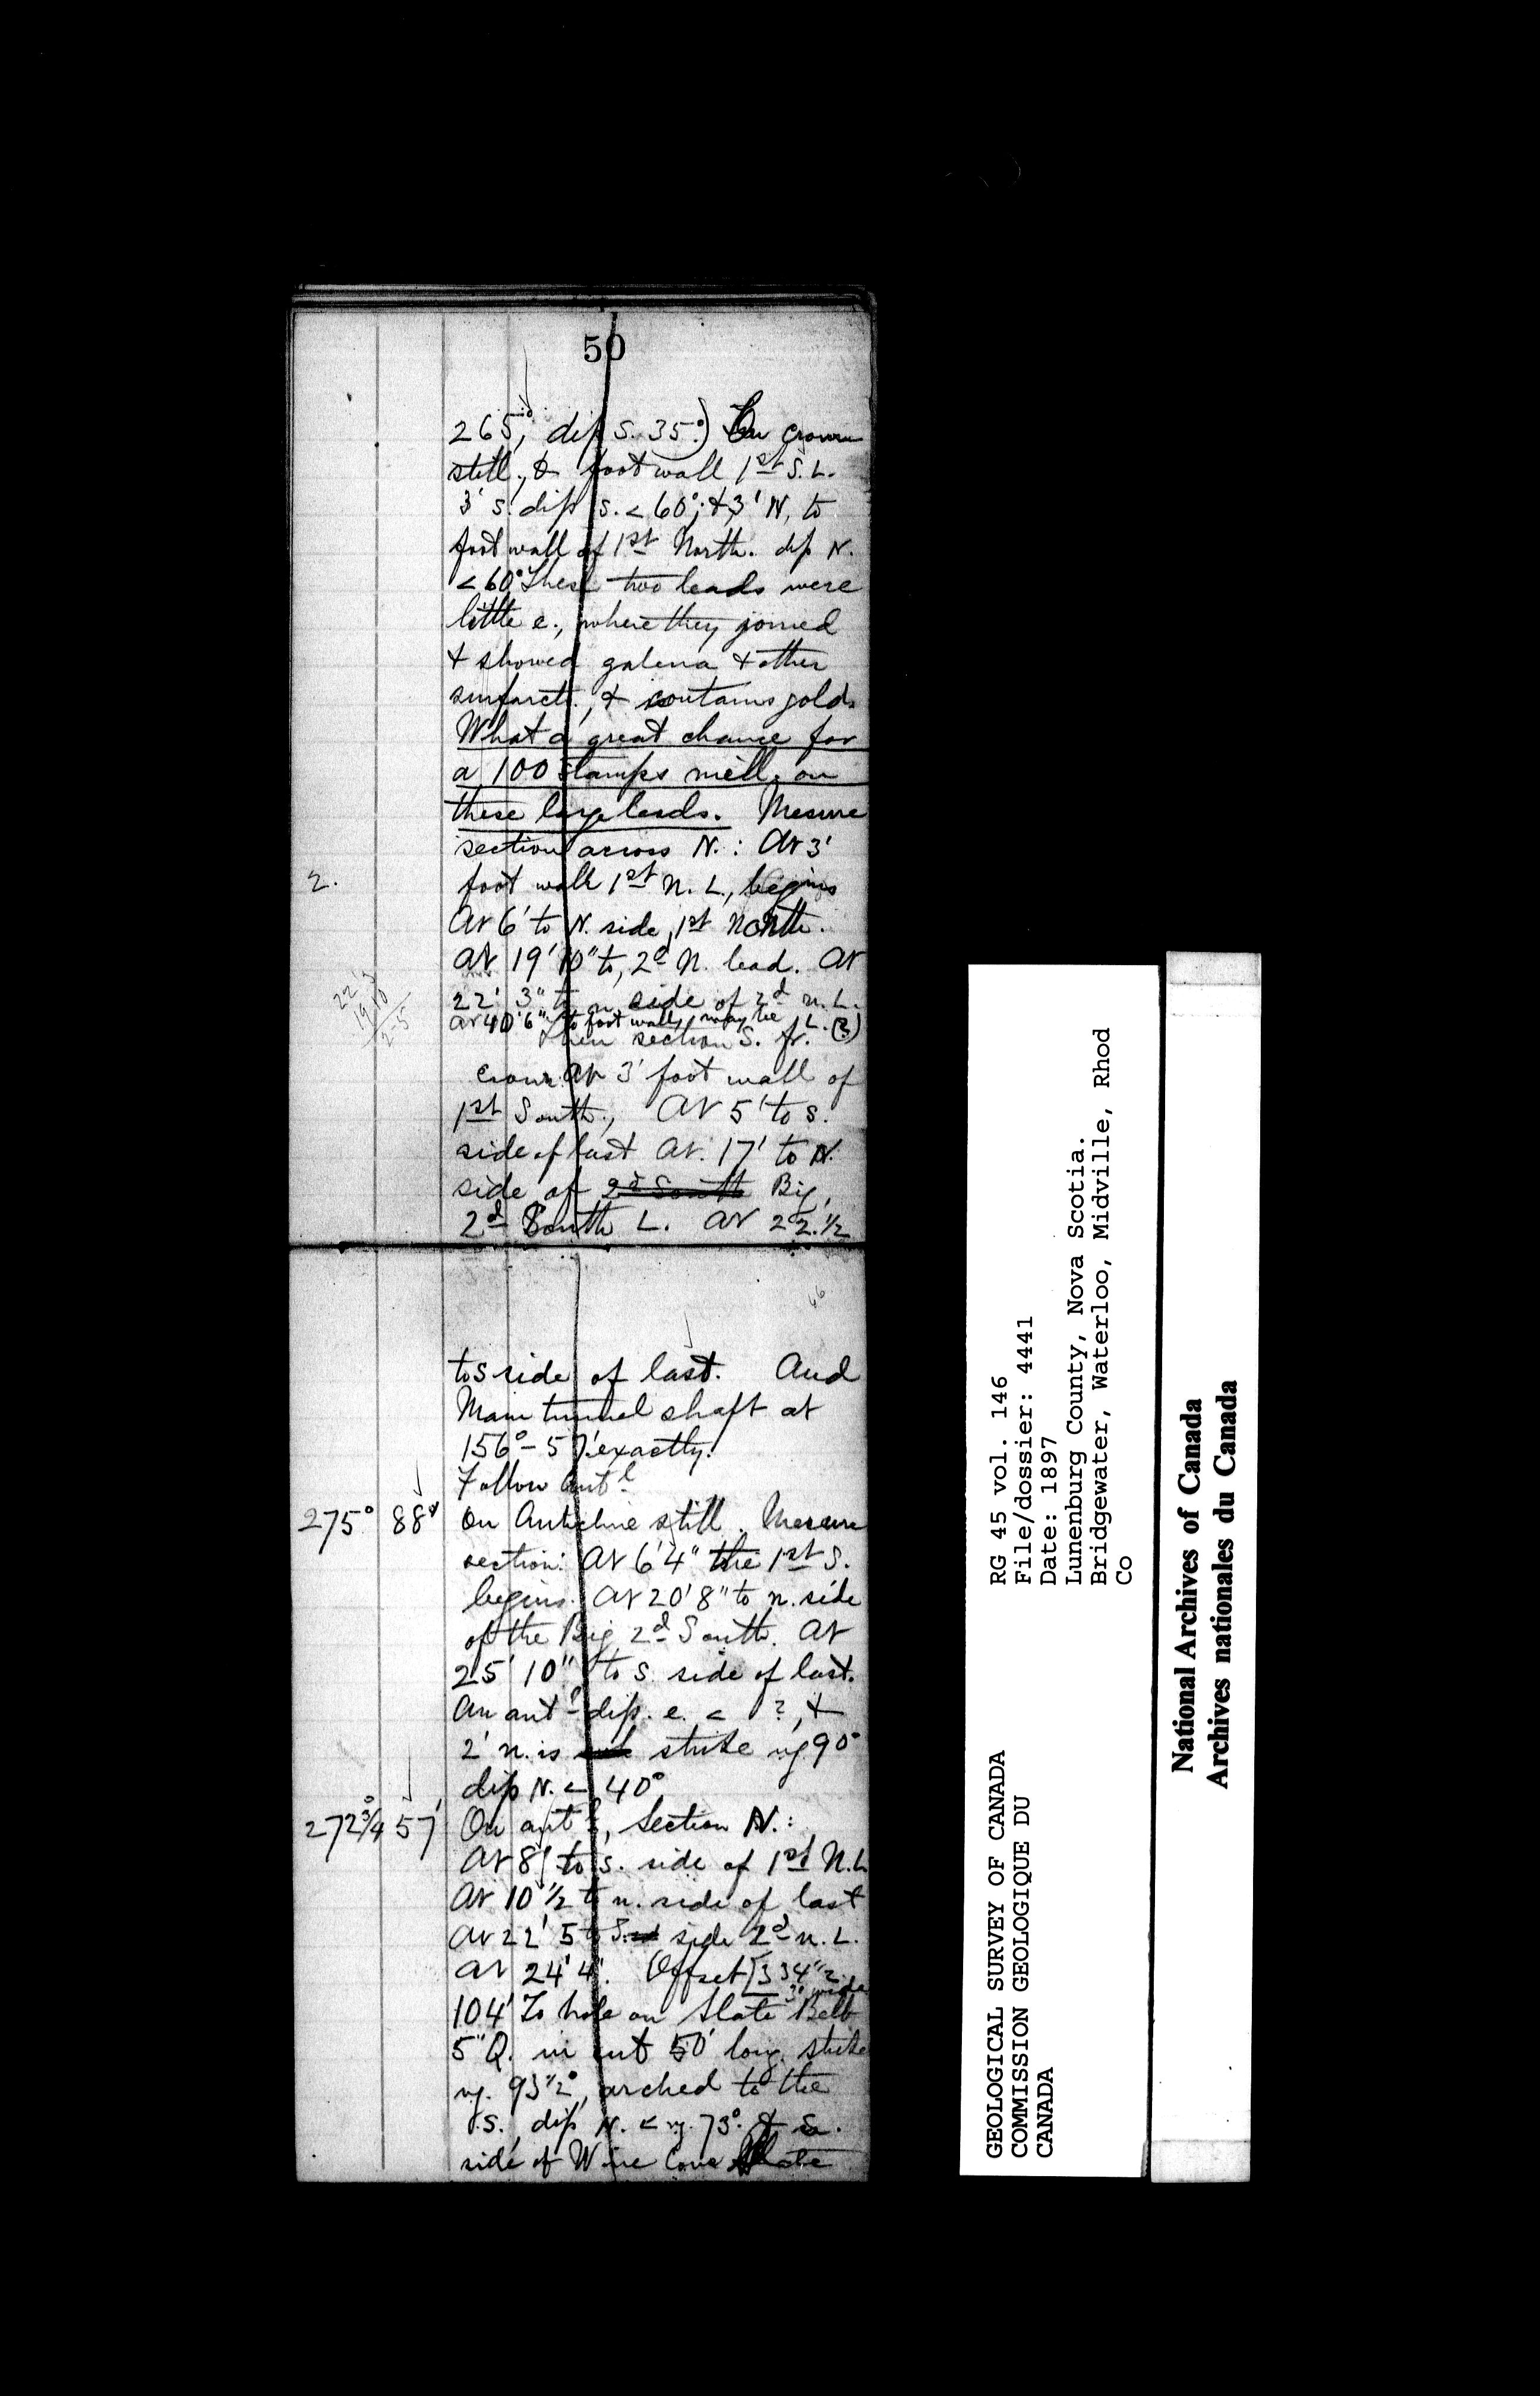 50
265°, dip S. 35°.) On crown
still, & foot wall 1st S. L.
3' s. dip S. < 60°; & 3' N, to
foot wall of 1st North. dip N.
< 60° These two leads were
little e., where they joined
& showed galena & other
, & contains gold.
What a great chance for
a 100 stamps mill, on
these large leads. Mesure
section across N.: At 3'
2. foot wall 1st N. L., begins
At 6' to N. side, 1st North.
At 19' 10" to, 2d N. lead. At
22' 3" to n side of 2d n. L.
At 40' 6" to foot wall, may be L. (?)
22 3
19 10
2-5
Then section S. fr.
crown At 3' foot wall of
1st South, At 5' to S.
side of last At. 17' to N.
side of 2d South Big,
2d South L. At 22.1/2
46
to s side of last. And
Main tunnel shaft at
156° - 57' exactly.
Follow antl
275° 88' On Anticline still. Mesure
section: At 6' 4" the 1st S.
begins. At 20' 8" to n. side
of the Big 2d South. At
25' 10" to S. side of last.
An antl dip. e. < ?, &
2' n. is strike mg 90°
dip N. < 40°
272 3/4° 57' On antl, Section N.:
At 8' to s. side of 1st N. L
At 10 1/2 to n. side of last
At 22' 5 to S. side 2d n. L.
At 24' 4". Offset [334 1/2
3' wide
104' To hole on Slate Belt
5" Q. in cut 50' long. strike
mg. 93 1/2°, arched to the
S., dip N. < mg. 73°. &
side of Cove Slate
RG 45 vol. 146
File/dossier: 4441
Date: 1897
Lunenburg County, Nova Scotia.
Bridgewater, Waterloo, Midville, Rhod
Co
GEOLOGICAL SURVEY OF CANADA
COMMISSION GEOLOGIQUE DU
CANADA
National Archives of Canada
Archives nationales du Canada